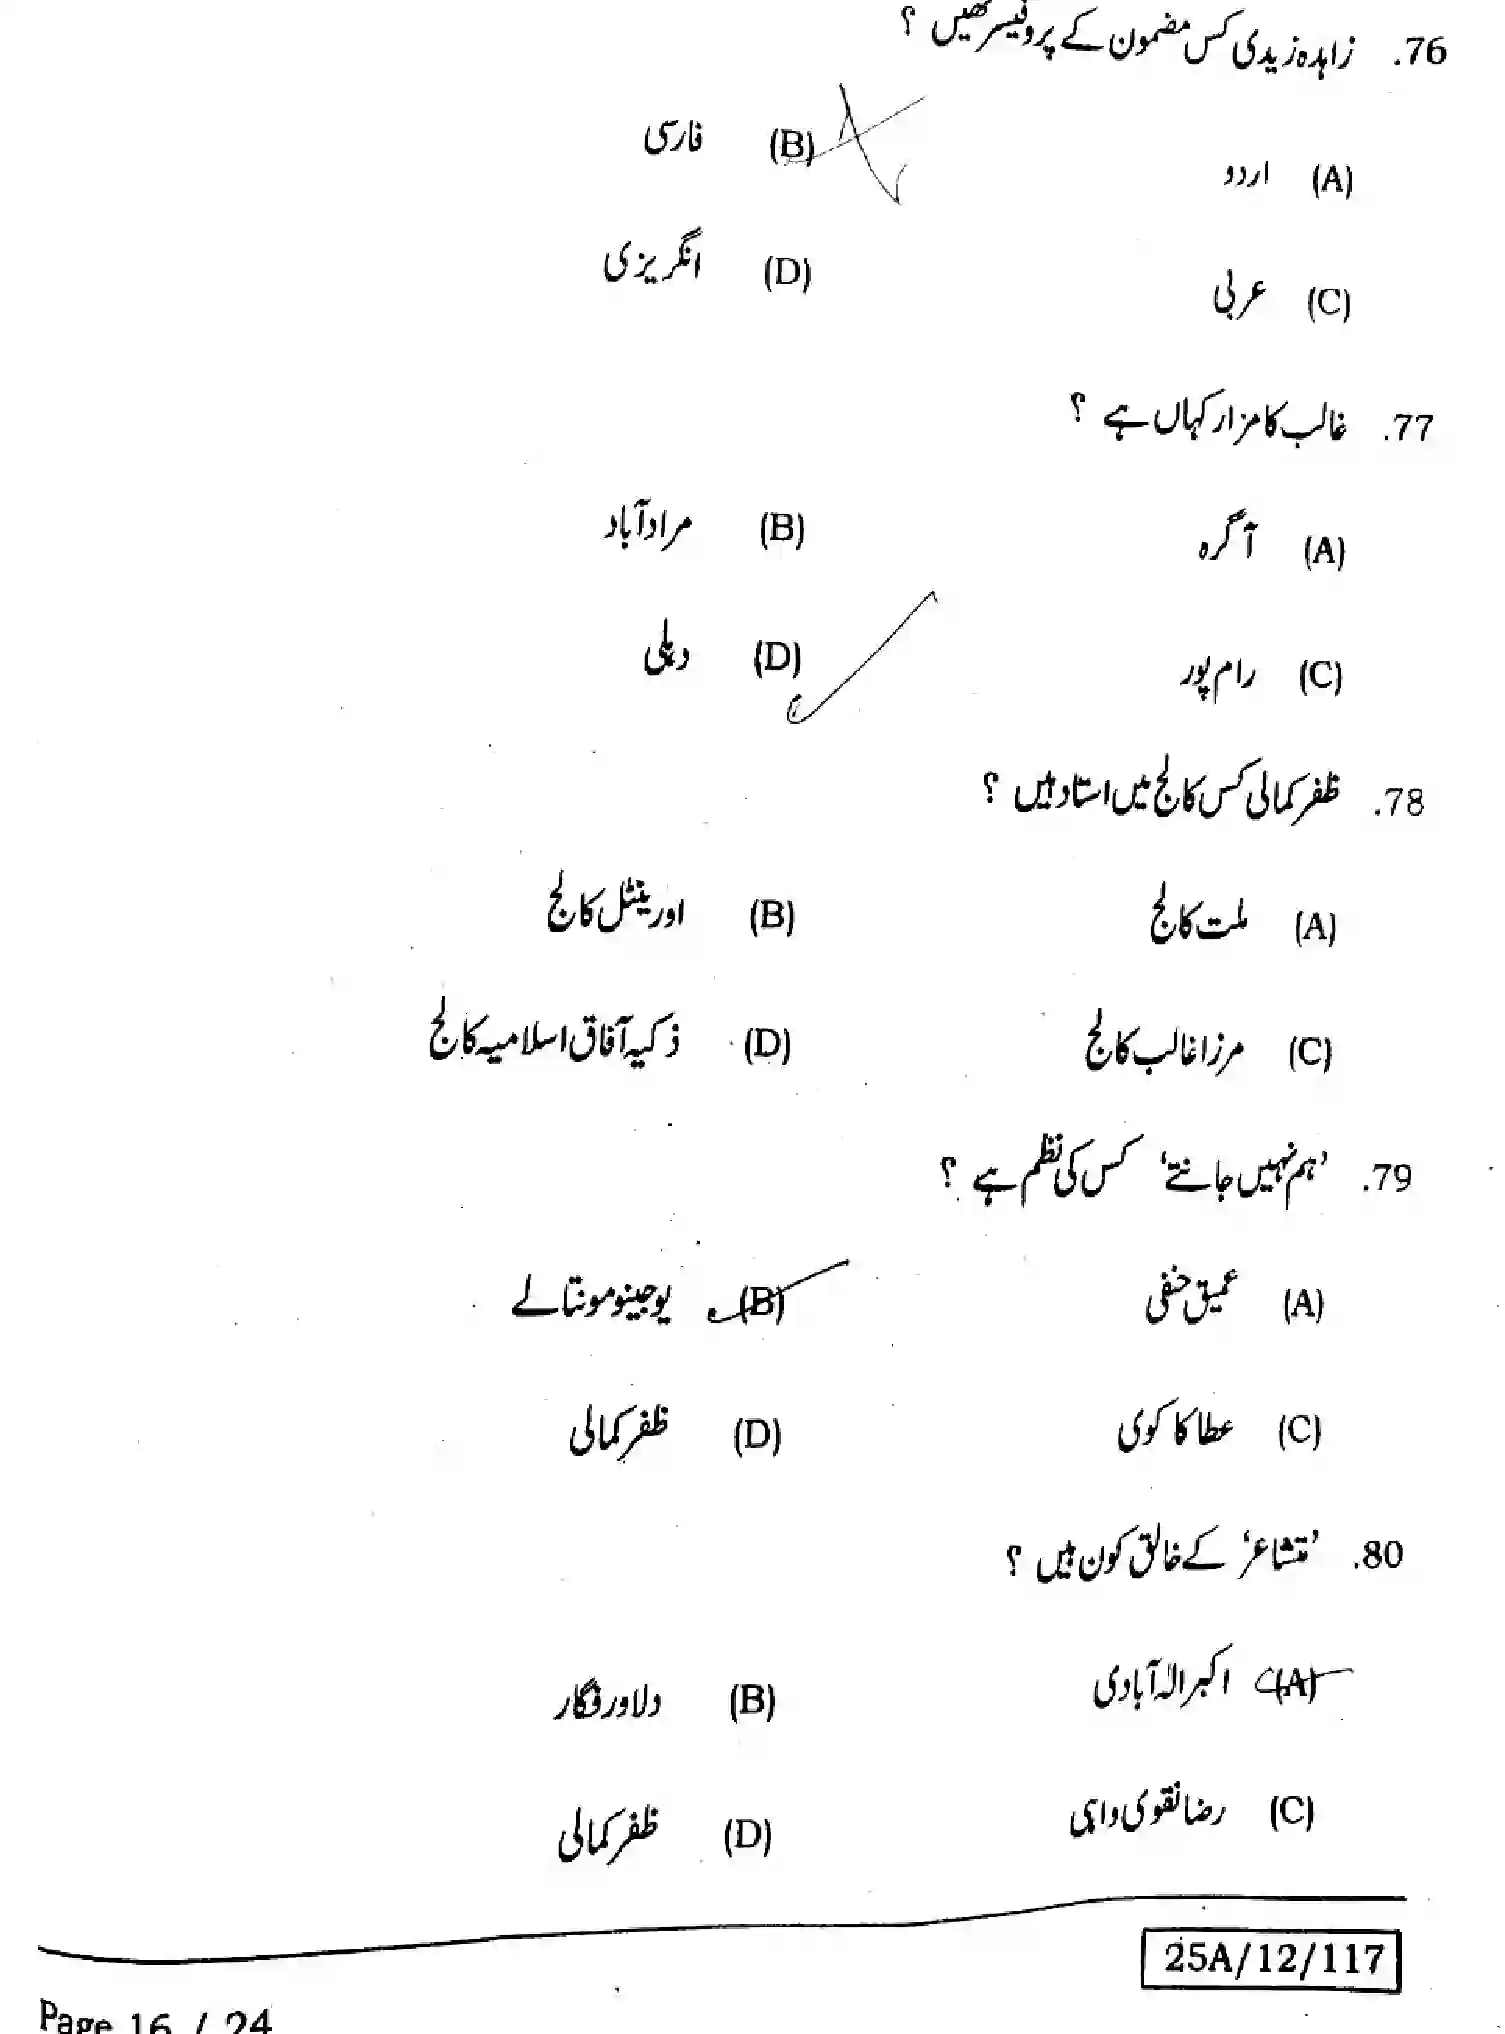 76. زاہدہ زیدی کس مضمون کے پروفیسر تھیں ؟
(A) اردو (B) فارسی
(C) عربی (D) انگریزی
77. غالب کا مزار کہاں ہے ؟
(A) آگرہ (B) مرادآباد
(C) رام پور (D) دہلی
78. ظفر کمالی کس کالج میں استاد ہیں ؟
(A) ملت کالج (B) اورینٹل کالج
(C) مرزا غالب کالج (D) ذکیہ آفاق اسلامیہ کالج
79. ’ہم نہیں جانتے‘ کس کی نظم ہے ؟
(A) عمیق حنفی (B) یوجینو مونتالے
(C) عطا کاکوی (D) ظفر کمالی
80. ’متشاعر‘ کے خالق کون ہیں ؟
(A) اکبر الہ آبادی (B) دلاور فگار
(C) رضا نقوی واہی (D) ظفر کمالی
25A/12/117
Page 16 / 24